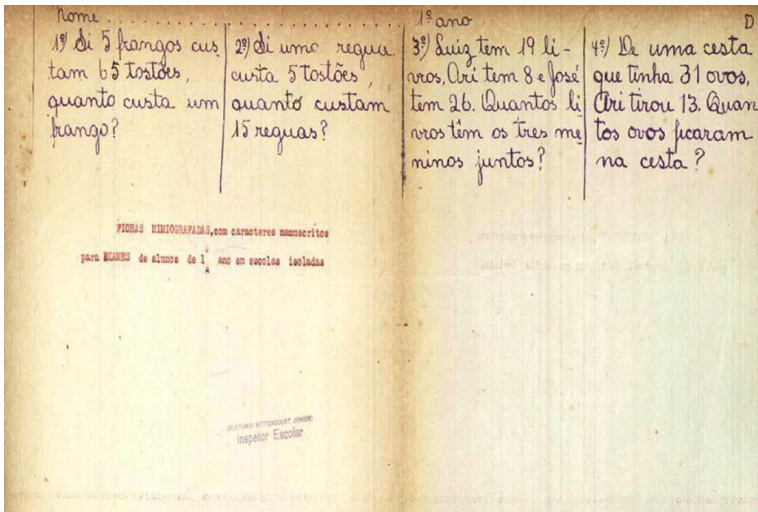 nome
1º ano
D
1º) Si 5 frangos cus
tam 65 tostões,
quanto custa um
frango?
2º) Si uma regua
custa 5 tostões,
quanto custam
15 reguas?
3º) Luiz tem 19 li-
vros, Ari tem 8 e José
tem 26. Quantos li
vros têm os tres me
ninos juntos?
4º) De uma cesta
que tinha 31 ovos,
Ari tirou 13. Quan
tos ovos ficaram
na cesta?
FICHAS MIMIOGRAFADAS, com caracteres manuscritos
para EXAMES de alunos de 1º ano em escolas isoladas
BITTENCOURT
Inspetor Escolar